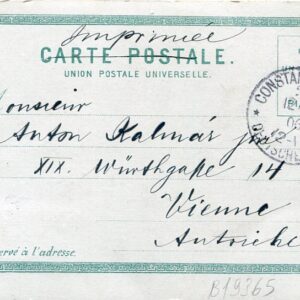 Imprimée
CARTE POSTALE.
UNION POSTALE UNIVERSELLE.
Monsieur
Anton Kalmár jun
XIX. Würthgaße 14
Vienne
Autriche
ervé à l'adresse.
CONSTA
B19365